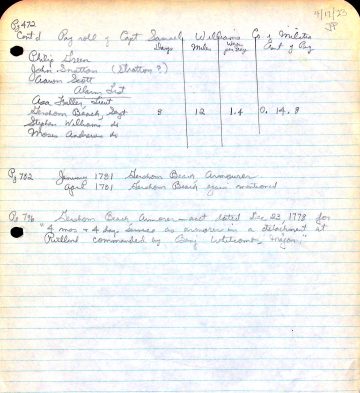 Pg 472
4/17/83
JP
Cont'd Pay roll of Capt Samuel Williams Co. of Militia
Days Miles Wages per Day Amt of Pay
Philip Green
John Sratton (Stratton?)
Aaron Scott
Alarm List
Asa Fuller, Lieut
Gershom Beach, Sergt 8 12 1.4 0. 14. 8
Stephen Williams do
Moses Andrews do
Pg 702 January 1781 Gershom Beach Armourer
April 1781 Gershom Beach again mentioned
Pg 796 Gershom Beach Armorer - acct dated Dec 23, 1778 for
"4 mos & 4 days service as armorer in a detachment at
Rutland commanded by Benj Whitcomb, Major."